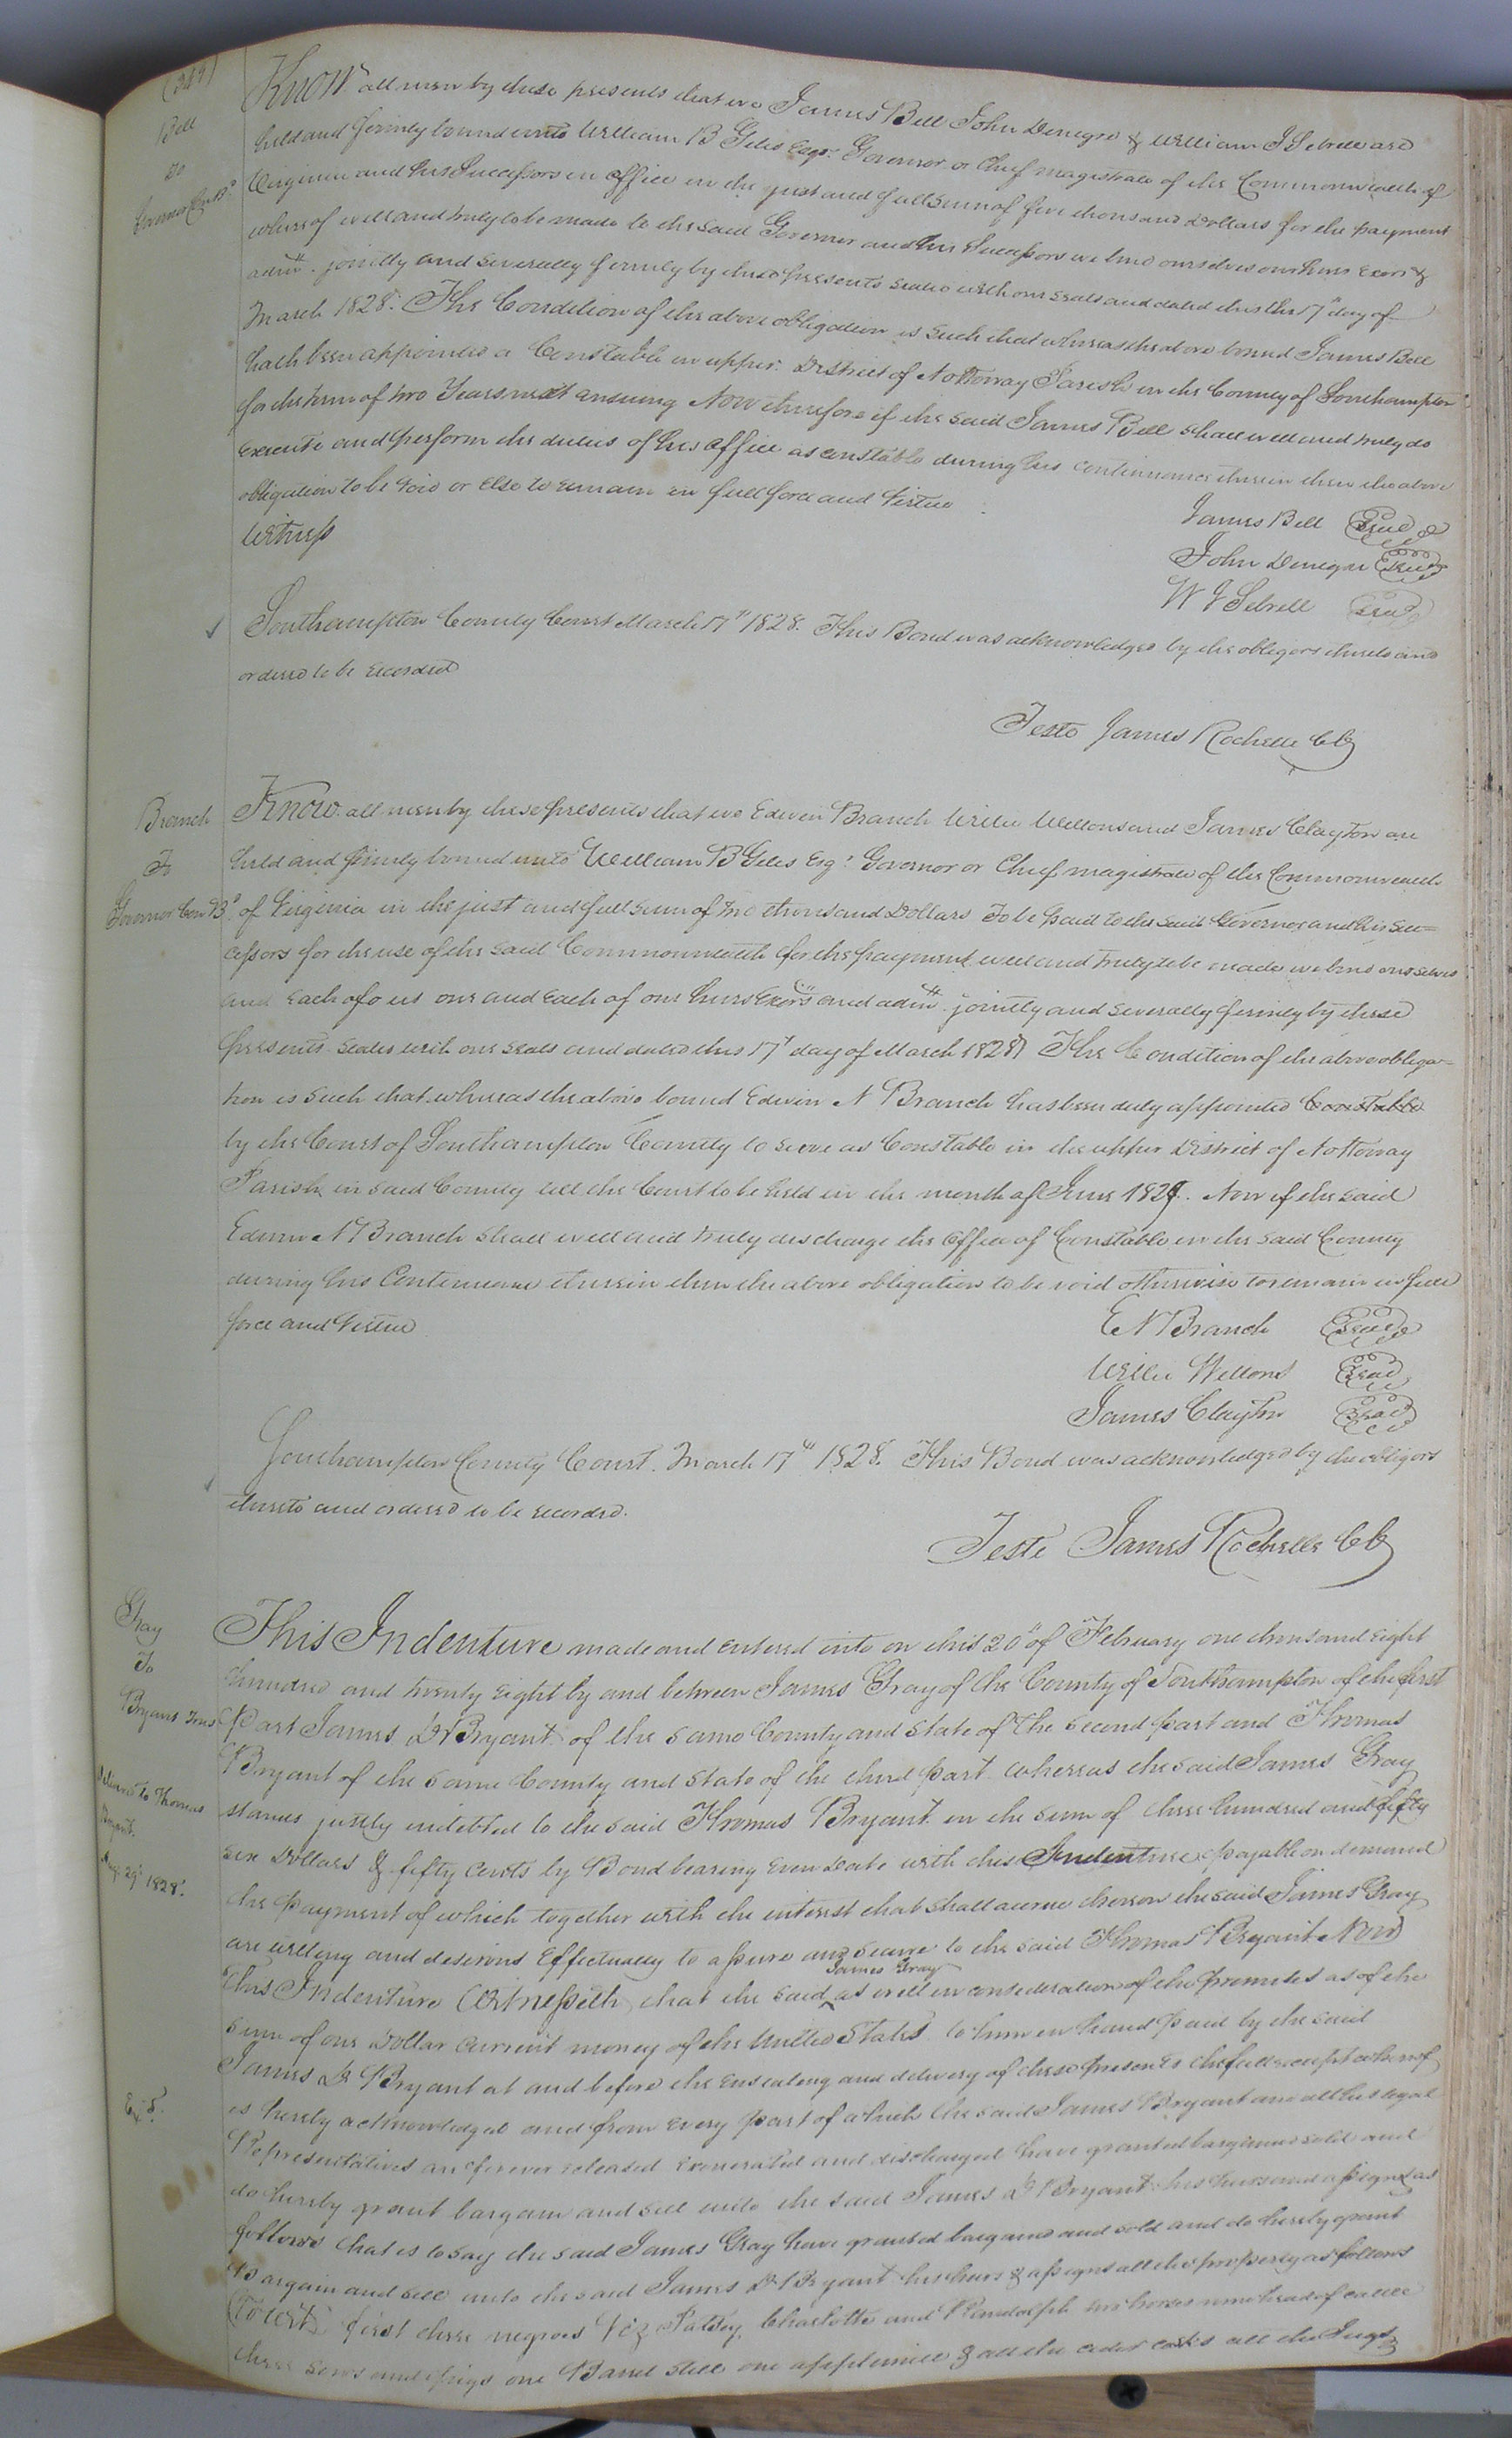 Bell
To
Governor Con Bd
Know all men by these presents that we James Bell John Denegre & William J Sebrell are
held and firmly bound unto William B Giles Esqr. Governor or Chief magistrate of the Commonwealth of
Virginia and his Successors in office in the just and full sum of five thousand Dollars for the payment
whereof well and truly to be made to the said Governor and his Successors we bind ourselves our heirs Exors &
admrs. jointly and severally firmly by these presents sealed with our seals and dated this the 17th day of
March 1828. The Condition of the above obligation is such that whereas the above bound James Bell
hath been appointed a Constable in upper District of Nottoway Parish in the County of Southampton
for the term of two Years next ensuing Now therefore if the said James Bell shall well and truly do
execute and perform the duties of his office as constable during his continuance therein then the above
obligation to be void or Else to remain in full force and Virtue
Witness
James Bell Seal
John Denegre Seal
W J Sebrell Seal
Southampton County Court March 17th 1828. This Bond was acknowledged by the obligors thereto and
ordered to be recorded
Teste James Rochelle CC
Branch
To
Governor Con Bd.
Know all men by these presents that we Edwin Branch Willie Wellons and James Clayton are
held and firmly bound unto William B Giles Esqr. Governor or Chief magistrate of the Commonwealth
of Virginia in the just and full sum of two thousand Dollars To be paid to the said Governor and his Suc=
cessors for the use of the said Commonwealth for the payment well and truly to be made we bind ourselves
and Each of us our and Each of our heirs Exors and admrs. jointly and severally firmly by these
presents sealed with our seals and dated this 17th day of March 1828 The Condition of the above obliga=
tion is such that whereas the above bound Edwin N Branch has been duly appointed Constable
by the Court of Southampton County to serve as Constable in the upper District of Nottoway
Parish in said County till the Court to be held in the month of June 1829. Now if the said
Edwin N Branch shall well and truly discharge the office of Constable in the said County
during his Continuance therein then the above obligation to be void otherwise to remain in full
force and Virtue
E N Branch Seal
Willie Wellons Seal
James Clayton Seal
Southampton County Court. March 17th 1828. This Bond was acknowledged by the obligors
thereto and ordered to be recorded.
Teste James Rochelle CC
Gray
To
Bryans Trust
Delivd to Thomas
Bryant.
Augt 29th 1828.
Ex d.
This Indenture made and entered into on this 20th of February one thousand Eight
hundred and twenty Eight by and between James Gray of the County of Southampton of the first
part James D Bryant of the same County and State of the second part and Thomas
Bryant of the same County and State of the third part whereas the said James Gray
stands justly indebted to the said Thomas Bryant in the sum of three hundred and fifty
six Dollars & fifty cents by Bond bearing Even Date with this Indenture payable on demand
the payment of which together with the interest that shall accrue thereon the said James Gray
are willing and desirous Effectually to assure and secure to the said Thomas Bryant Now
James Gray
this Indenture Witnesseth that the said as well in consideration of the premises as of the
sum of one Dollar Current money of the United States to him in hand paid by the said
James D Bryant at and before the Ensealing and delivery of these presents the full receipt whereof
is hereby acknowledged and from Every part of which the said James Bryant and all his legal
Representatives are forever released Exonerated and discharged have granted bargained sold and
do hereby grant bargain and sell unto the said James D Bryant his heirs and assigns as
follows that is to say the said James Gray have granted bargaind and sold and do hereby grant
Bargain and sell unto the said James D Bryant his heirs & assigns all the property as follows
(Towit) first three negroes Viz Patsy, Charlotte and Randolph two horses nine head of cattle
three sows and pigs one Brand Still one applemill & all the cider casks all the